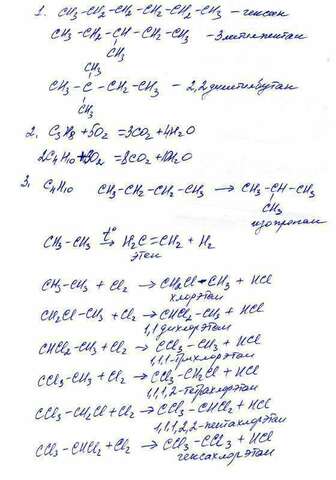 1. CH3-CH2-CH2-CH2-CH2-CH3 - гексан
CH3-CH2-CH-CH2-CH3 - 3метилпентан
CH3
CH3
CH3-C-CH2-CH3 - 2,2диметилбутан
CH3
2. C3H8 + 5O2 = 3CO2 + 4H2O
2C4H10 + 13O2 = 8CO2 + 10H2O
3. C4H10 CH3-CH2-CH2-CH3 → CH3-CH-CH3
CH3
изопропан
CH3-CH3 t° → H2C=CH2 + H2
этен
CH3-CH3 + Cl2 → CH2Cl-CH3 + HCl
хлорэтан
CH2Cl-CH3 + Cl2 → CHCl2-CH3 + HCl
1,1дихлорэтан
CHCl2-CH3 + Cl2 → CCl3-CH3 + HCl
1,1,1-трихлорэтан
CCl3-CH3 + Cl2 → CCl3-CH2Cl + HCl
1,1,1,2-тетрахлорэтан
CCl3-CH2Cl + Cl2 → CCl3-CHCl2 + HCl
1,1,1,2,2-пентахлорэтан
CCl3-CHCl2 + Cl2 → CCl3-CCl3 + HCl
гексахлорэтан